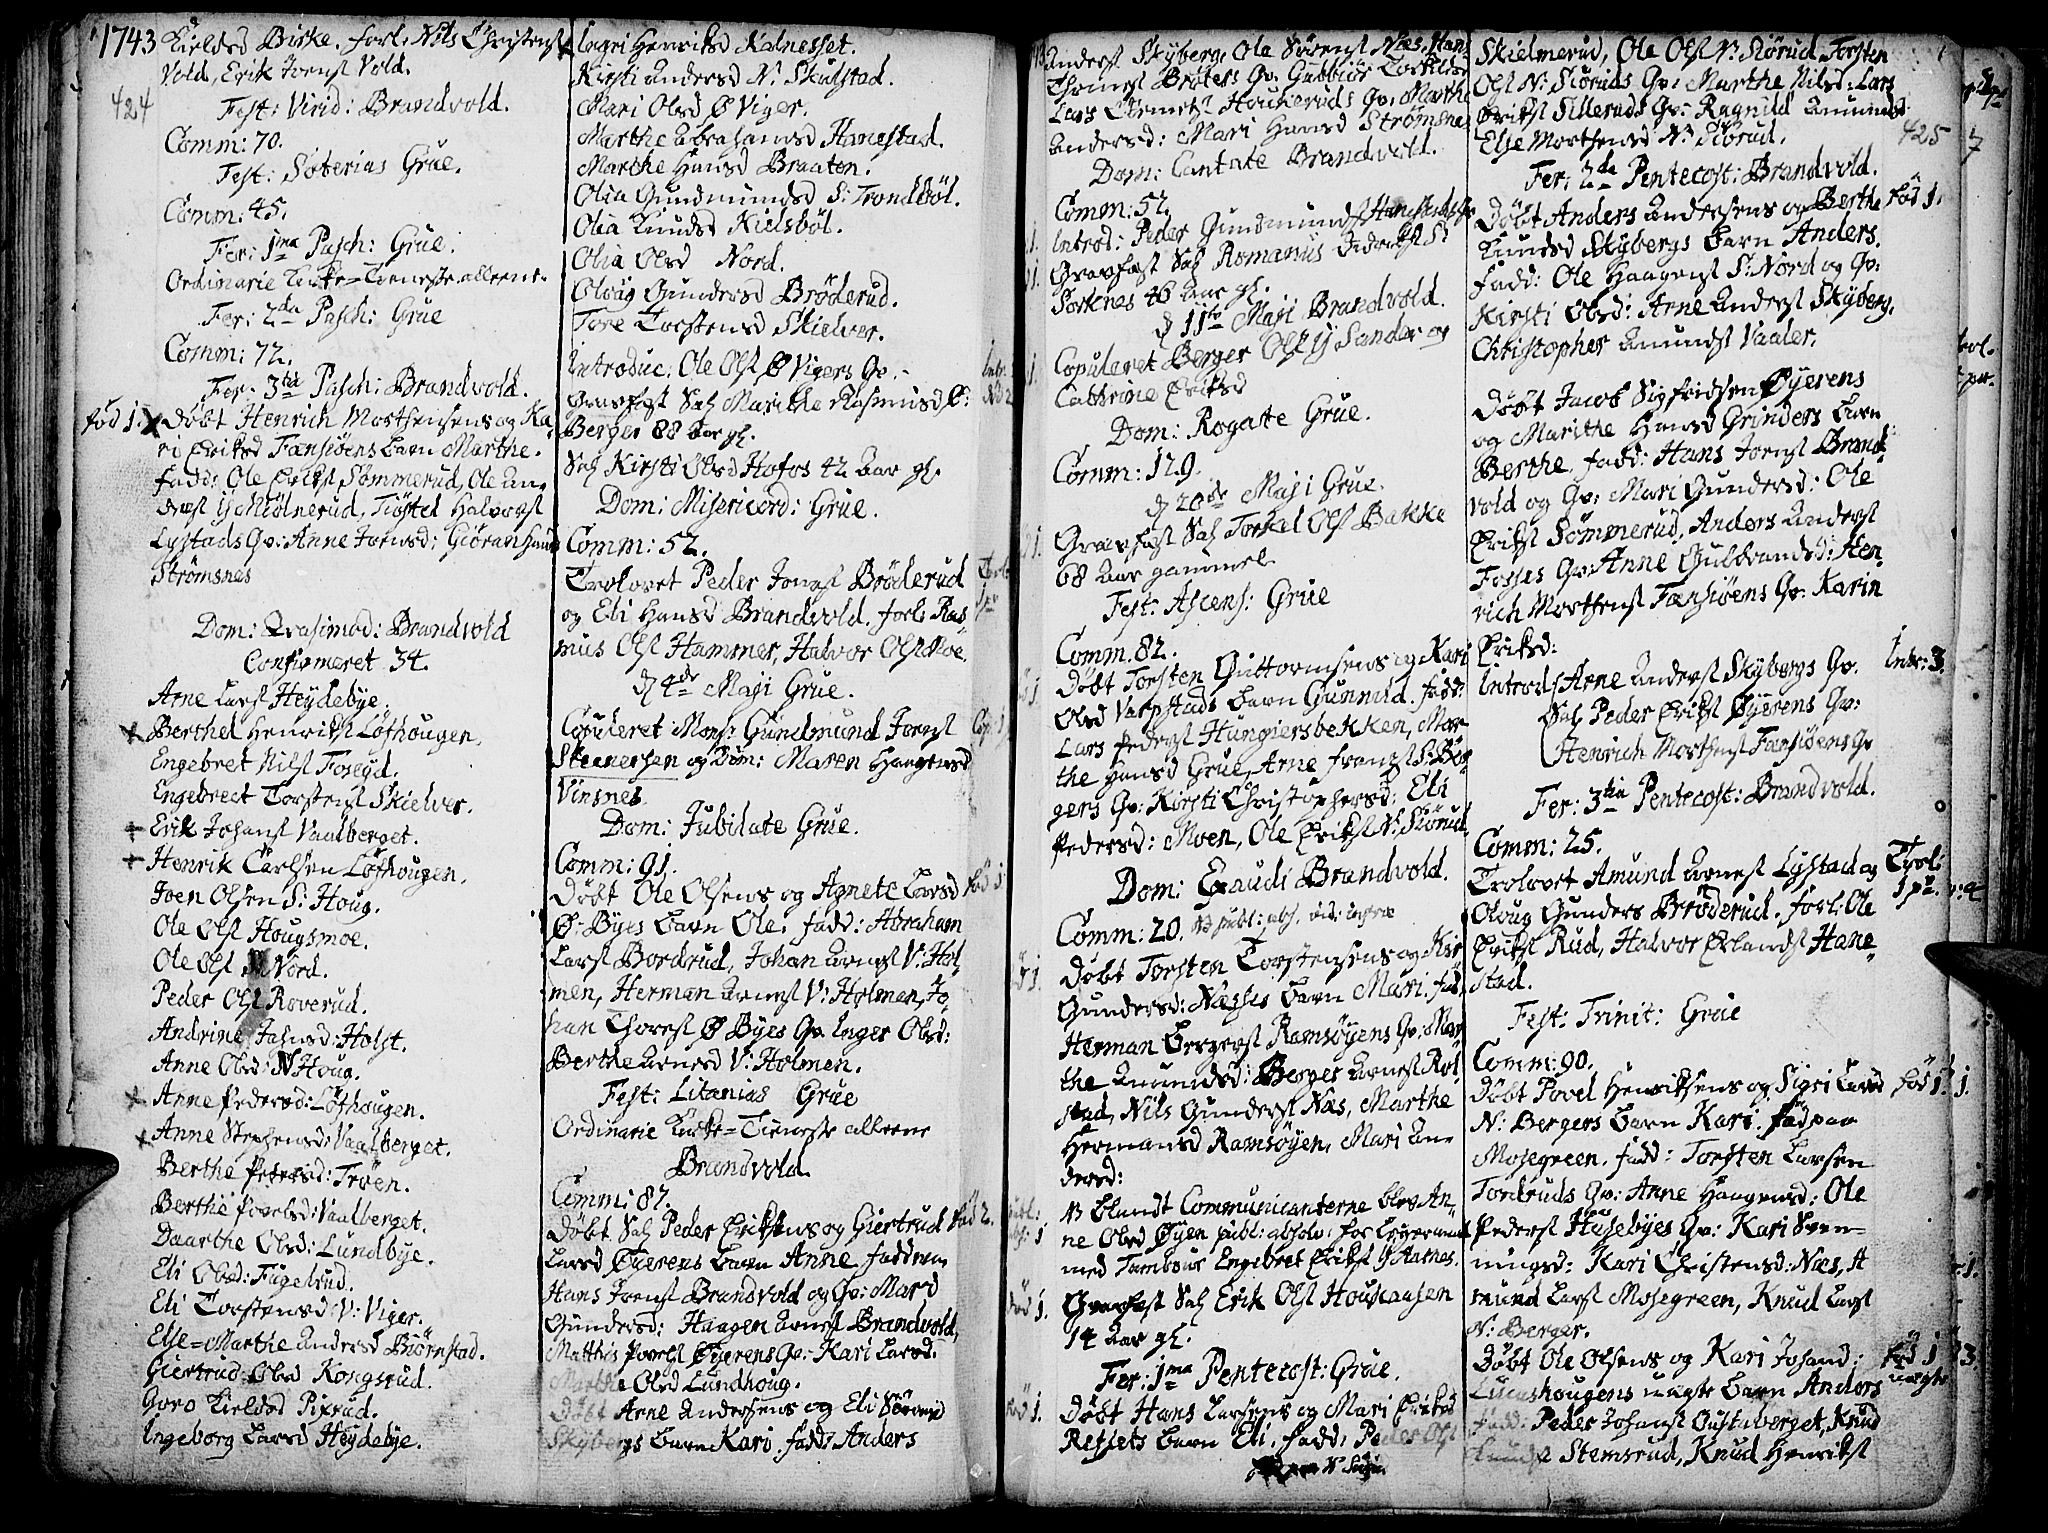 1743
424
Kieldsd Birke. forl: Nils Christenss
Vold, Erik Joenss Vold.
Fest: Virid: Brandvold.
Comm: 70.
Fest: Soterias Grue.
Comm: 45.
Fer: 1ma Pasch: Grue.
Ordinarie Kirke-Tieneste alleene.
Fer: 2da Pasch: Grue
Comm: 72.
Fer: 3tia Pasch: Brandvold.
fød 1.
Døbt Henrich Morthensens og Ka-
ri Eriksd Fænsiøens barn Marthe.
fadd: Ole Erikss Sømmerud, Ole An-
derss Y Miølnerud, Tiøstel Halvorss
Lystads Qv: Anne Joensd: Giøran Hansd
Strømsnes
Dom: Qvasimod: Brandvold
Confirmeret 34.
Arne Larss Heydebye.
Berthel Henrikss Løfhougen.
Engebret Nilss Foseyd.
Engebrect Torstenss Skielver.
Erik Johanss Vaalberget.
Henrik Carlsen Løfhougen.
Joen Olsen S: Houg.
Ole Olss Hougsmoe.
Ole Olss Nord.
Peder Olss Roverud.
Andrine Jahnsd: Holst.
Anne Olsd: N Houg.
Anne Pedersd: Løfhougen.
Anne Stephensd: Vaalberget.
Berthe Pedersd: Trøen.
Berthe Povelsd: Vaalberget.
Daarthe Olsd: Lundbye.
Eli Olsd: Fugelrud.
Eli Torstensd: V: Viger.
Else-Marthe Andersd Biørnstad.
Giertrud Olsd Kongsrud.
Goro Kieldsd Pixrud.
Ingeborg Larsd Heydebye.
Ingri Henriksd Kalnesset.
Kirsti Andersd N: Skulstad.
Mari Olsd Ø Viger.
Marthe Abrahamsd Hanestad.
Marthe Hansd Braaten.
Olia Gundmundsd S: Trondbøl.
Olia Knudsd Kielsbøl.
Olia Olsd Nord.
Olaug Gundersd Brøderud.
Tore Torstensd Skielver.
Introduc: Ole Olss Ø Vigers Qv:
Gravfæst Sal Marithe Rasmusd Ø:
Berger 88 Aar gl.
Sal Kirsti Olsd Hofos 42 Aar gl.
Dom: Misericord: Grue.
Comm: 52.
Trolovet Peder Jonss Brøderud
og Eli Hansd Brandvold. forl: Ras-
mus Olss Hammer, Halvor Olss Noe.
d 4de Maji Grue.
Copuleret Mons: Gundmund Joenss
Stennersen og Dom: Maren Haagensd
Vinsnes
Dom: Jubilate Grue.
Comm: 91.
Døbt Ole Olsens og Agnete Larsd
Ø: Byes barn Ole. fadd: Abraham
Larss Bordrud, Johan Arness V: Hol-
men, Herman Arness V: Holmen, Jo-
han Thoress Ø Byes Qv: Inger Olsd:
Berthe Arnesd V: Holmen.
Fest: Litanias Grue
Ordinarie Kirke-Tieneste alleene
Brandvold
Comm: 87.
Døbt Sal Peder Eriksens og Giertrud
Larsd Øyerens barn Anne. faddere
Hans Joenss Brandvold og Qv: Mari
Gundersd: Haagen Arness Brandvold,
Matthis Povelss Øyerens Qv: Kari Larsd.
Marthe Olsd Lundhoug.
Døbt Arne Andersens og Eli Sørensd
Skybergs barn Kari. fadd: Anders
Anderss Skyberg, Ole Sørenss Næs, Hans
Lars Clemetss Houkeruds Qv: Marthe
Andersd: Mari Hansd Strømsnes
Dom: Cantate Brandvold.
Comm: 52.
Introd: Peder Gundmundss Hanestads Qv:
Gravfæst Sal Romanus Didrikss S:
Sorknes 46 Aar gl.
d 11te Maji Brandvold.
Copuleret Berger Olss Y Sander og
Cathrine Eriksd
Dom: Rogate Grue.
Comm: 129.
d 20de Maji Grue.
Gravfæst Sal Torkel Olss Bakke
68 Aar gammel.
Fest: Ascens: Grue
Comm. 82.
Døbt Torsten Guttormsens og Kari
Olsd Varpstads barn Gunnild. fadd:
Lars Pederss Hungiersbekken, Mar-
the Hansd Grue, Arne Franss S: Ber-
gers Qv: Kirsti Christophersd: Eli
Pedersd: Moen, Ole Erikss N: Siørud.
Dom: Exaudi Brandvold.
Comm: 20.
Døbt Torsten Torstensens og Kir-
Gundersd: Næsses barn Mari. fad.
Herman Bergerss Ramsøyens Qv: Mar-
the Amundsd: Berger Arness Rol-
stad, Nils Gunderss Næs, Marthe
Hermansd Ramsøyen, Mari An-
dersd:
NB blandt Communicanterne blev An-
ne Olsd Øyen publ: absolv: for Leyermaal
med Tambour Engebret Erikss Y Aarnes.
Gravfæst Sal Erik Olss Houkaasen
14 Aar gl.
Fer: 1ma Pentecost: Grue.
Døbt Hans Larsens og Mari Eriksd
Ressets barn Eli. fadd: Peder Olss
Skielmerud, Ole Olss N: Siørud, Torsten
Olss N: Siøruds Qv: Marthe Nilsd: Lars
Erikss Tilleruds Qv: Ragnild Amundsd
Else Morthensd N: Siørud.
425
Fer: 2da Pentecost: Brandvold.
Døbt Anders Andersens og Berthe
fød 1.
Knudsd Skybergs barn Anders.
fadd: Ole Haagenss S: Nord og Qv:
Kirsti Olsd: Arne Anderss Skyberg,
Christopher Amundss Vaaler.
Døbt Jacob Sigfridsen Øyerens
og Marithe Hansd Grinders barn
Berthe. fadd: Hans Joenss Brand-
vold og Qv: Mari Gundersd: Ole
Erikss Sømmerud, Anders Anderss
Fosses Qv: Anne Guldbrandsd: Hen-
rich Morthenss Fænsiøens Qv: Karin
Eriksd:
Introd: Arne Anderss Skybergs Qv.
Intr: 3.
Sal Peder Erikss Øyerens Qv:
Henrich Morthenss Fænsiøens Qv
Fer: 3tia Pentecost: Brandvold.
Comm: 25.
Trolovet Amund Arness Lystad og
Trol: 1 par.
Olaug Gunders Brøderud. forl: Ole
Erikss Rud, Halvor Erlandss Hane-
stad.
Fest: Trinit: Grue
Comm: 90.
Døbt Povel Henriksens og Sigri Larsd
fød 1.
N: Bergers barn Kari. fadd:
Mosegreen. fadd: Torsten Larsen
Torderuds Qv: Anne Haagensd: Ole
Pederss Husebyes Qv: Kari Sven-
ningsd: Kari Christensd: Næs, A-
mund Larss Mosegreen, Knud Larss
N: Berger.
Døbt Ole Olsens og Kari Johansd:
fød 1 uægte
Lucashougens uægte barn Anders
fadd: Peder Johanss Gustaberget, Knud
Knudss Stemsrud, Knud Henrikss